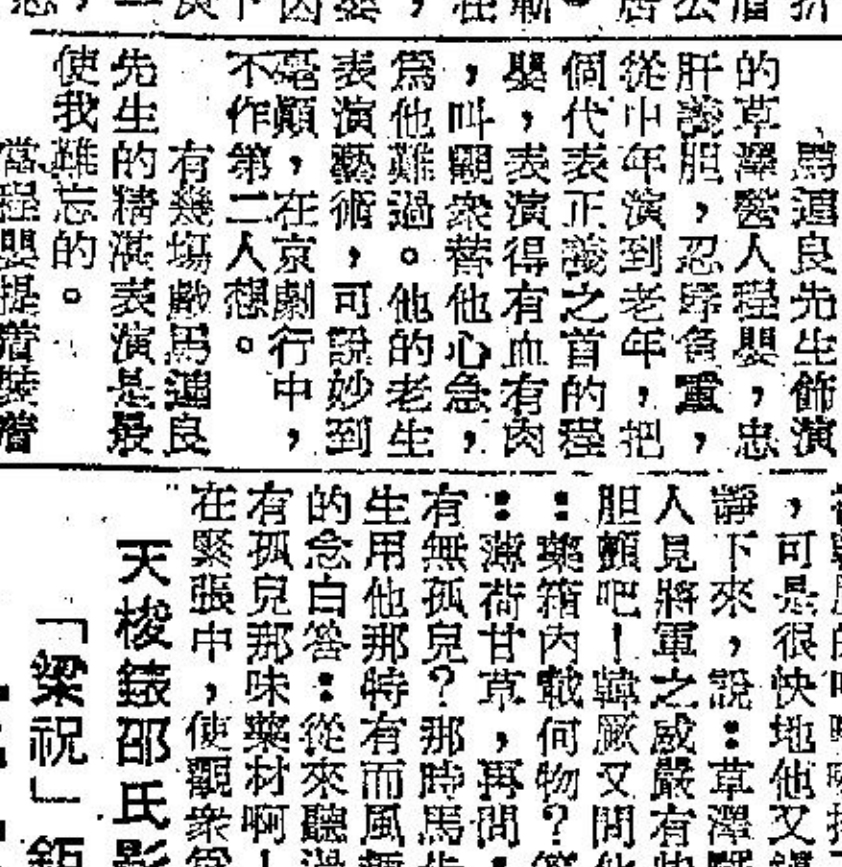 馬連良先生飾演
的草澤醫人程嬰，忠
肝義胆，忍辱負重，
從中年演到老年，把
個代表正義之首的程
嬰，表演得有血有肉
，叫觀衆替他心急，
爲他難過。他的老生
表演藝術，可說妙到
毫顚，在京劇行中，
不作第二人想。
有幾塲戲馬連良
先生的精湛表演是最
使我難忘的。
當程嬰提着裝着
，可是很快地他又
靜下來，說：草澤醫
人見將軍之威嚴有
胆顫吧！韓厥又問
：藥箱內載何物？
：薄荷甘草，再問：
有無孤兒？那時馬先
生用他那特有而風
的念白答：從來聽
有孤兒那味藥材啊！
在緊張中，使觀衆
天梭錶邵氏影
「梁祝」鉅